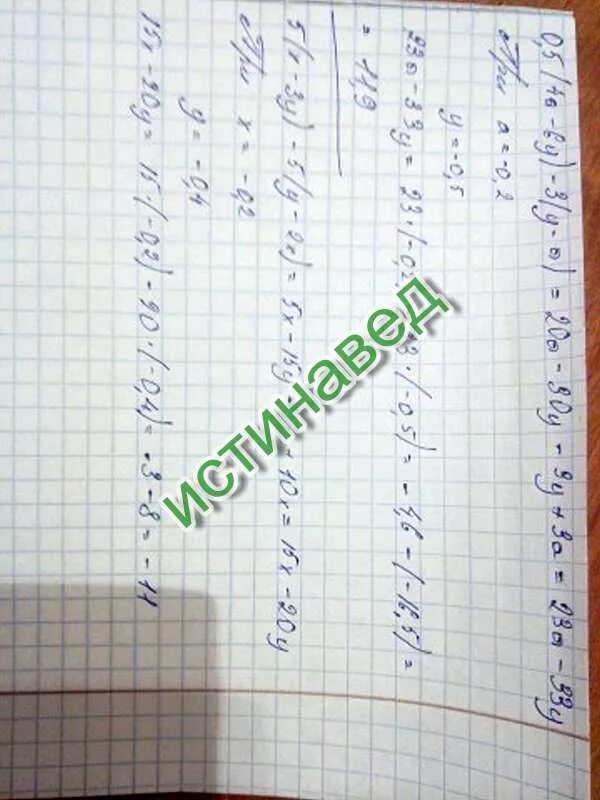 0,5(4a-6y)-3(y-a) = 20a-30y-3y+3a = 23a-33y
При a=-0,2
y=-0,5
23a-33y = 23·(-0,2 3·(-0,5) = -4,6-(-16,5) =
= 11,9
5(x-3y)-5(y-2x) = 5x-15y +10x = 15x-20y
При x = -0,2
y = -0,4
15x-20y = 15·(-0,2)-20·(-0,4) = -3-8 = -11
истинавед